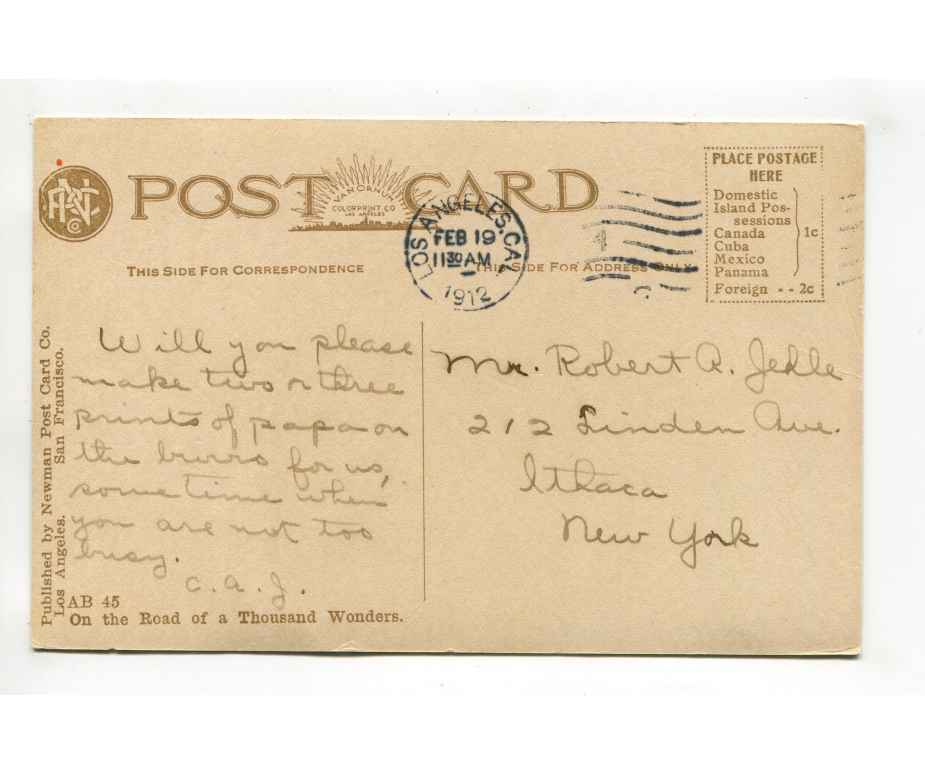 POST CARD
VANORNUM
COLORPRINT CO
LOS ANGELES
LOS ANGELES, CAL
FEB 19
11 30 AM
1912
PLACE POSTAGE
HERE
Domestic
Island Pos-
sessions
Canada
Cuba
Mexico
Panama
1c
Foreign - - 2c
THIS SIDE FOR CORRESPONDENCE
THIS SIDE FOR ADDRESS ONLY
Published by Newman Post Card Co.
Los Angeles. San Francisco.
Will you please
make two or three
prints of papa on
the burro for us,
some time when
you are not too
busy.
C. A. J.
Mr. Robert A. Jehle
212 Linden Ave.
Ithaca
New York
AB 45
On the Road of a Thousand Wonders.